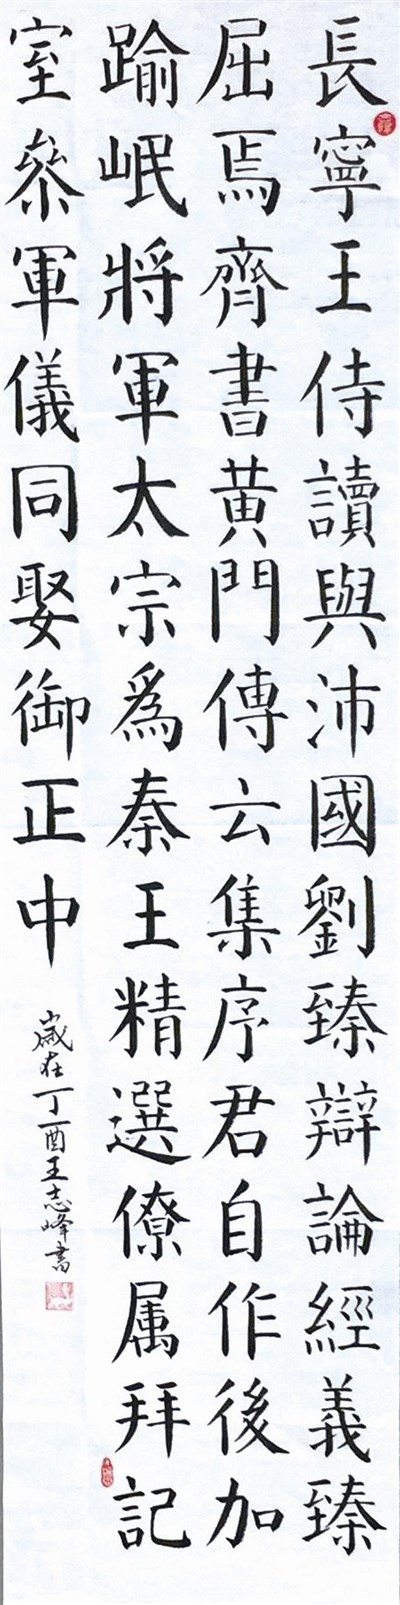 長寧王侍讀與沛國劉臻辯論經義臻
屈焉齊書黃門傳云集序君自作後加
踰岷將軍太宗爲秦王精選僚属拜記
室叅軍儀同娶御正中
歲在丁酉王志峰書